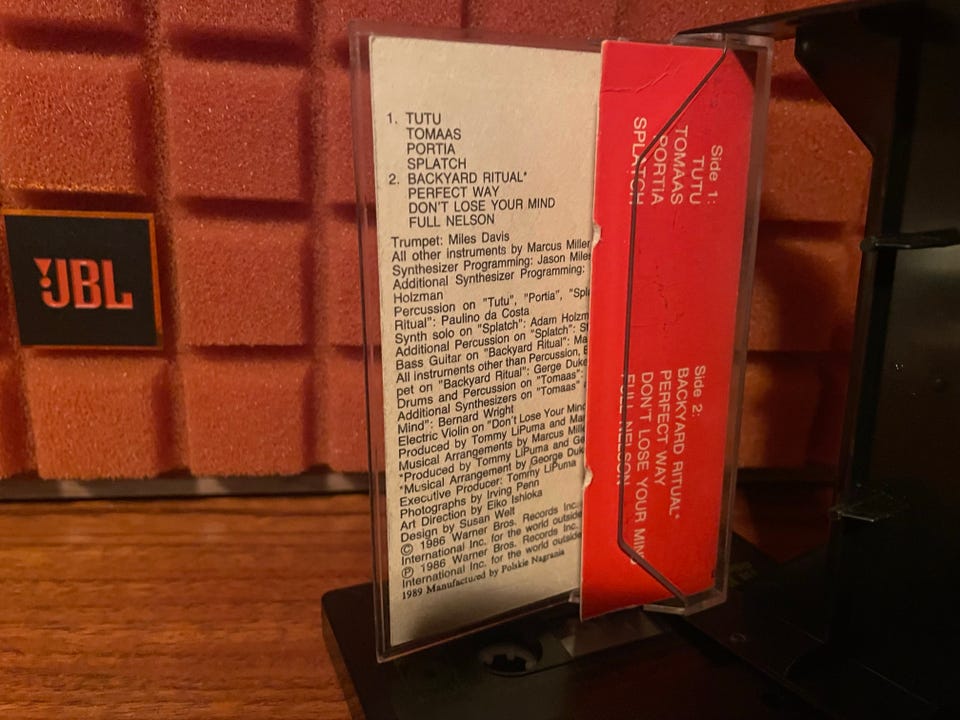 JBL
1. TUTU
TOMAAS
PORTIA
SPLATCH
2. BACKYARD RITUAL*
PERFECT WAY
DON'T LOSE YOUR MIND
FULL NELSON
Trumpet: Miles Davis
All other instruments by Marcus Miller
Synthesizer Programming: Jason Miles
Additional Synthesizer Programming:
Holzman
Percussion on "Tutu", "Portia", "Spl
Ritual": Paulino da Costa
Synth solo on "Splatch": Adam Holzm
Additional Percussion on "Splatch": S
Bass Guitar on "Backyard Ritual": Ma
All instruments other than Percussion, B
pet on "Backyard Ritual": Gerge Duke
Drums and Percussion on "Tomaas":
Additional Synthesizers on "Tomaas"
Mind": Bernard Wright
Electric Violin on "Don't Lose Your Mind
Produced by Tommy LiPuma and Mar
Musical Arrangements by Marcus Mille
*Produced by Tommy LiPuma and Ge
*Musical Arrangement by George Duk
Executive Producer: Tommy LiPuma
Photographs by Irving Penn
Art Direction by Eiko Ishioka
Design by Susan Welt
© 1986 Warner Bros. Records Inc.
International Inc. for the world outside
℗ 1986 Warner Bros. Records Inc.
International Inc. for the world outside
1989 Manufactured by Polskie Nagrania
Side 1:
TUTU
TOMAAS
PORTIA
SPLATCH
Side 2:
BACKYARD RITUAL*
PERFECT WAY
DON'T LOSE YOUR MIND
FULL NELSON